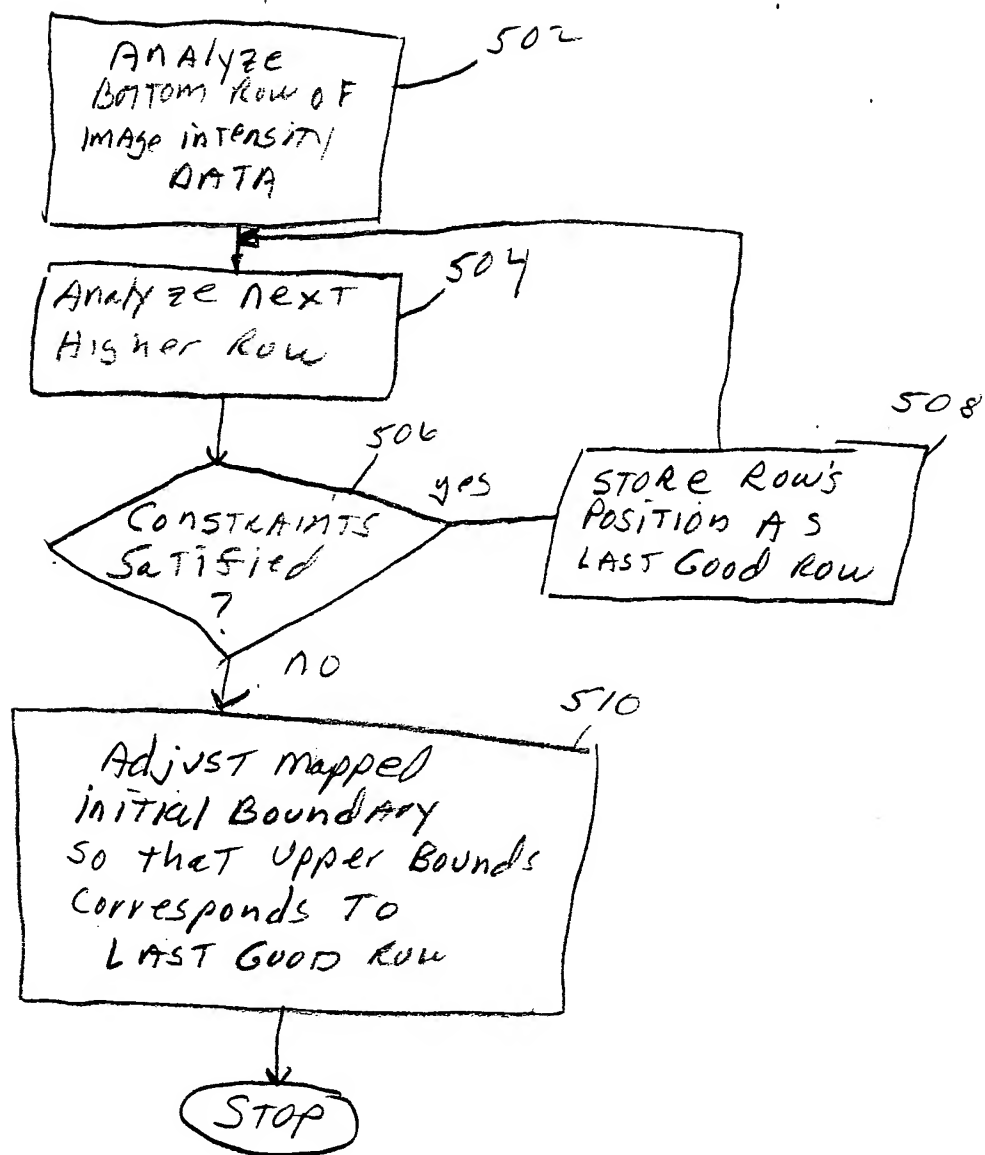 Analyze
Bottom Row of
Image intensity
DATA
502
Analyze next
Higher Row
504
Constraints
Satified
?
506
yes
STORE Row's
Position As
LAST Good Row
508
no
Adjust mapped
initial Boundary
so that upper Bounds
Corresponds To
LAST GOOD Row
510
STOP